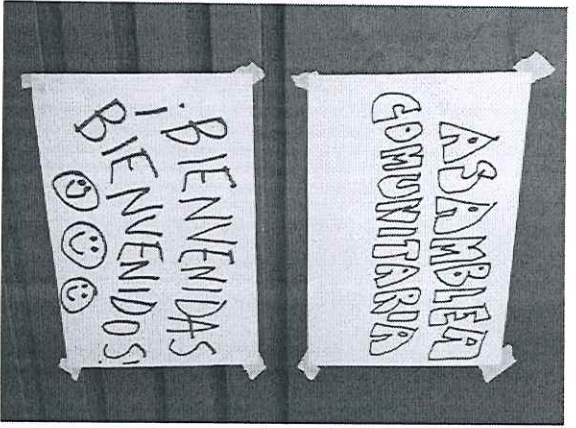 ASAMBLEA
COMUNITARIA
¡BIENVENIDAS
BIENVENIDOS!